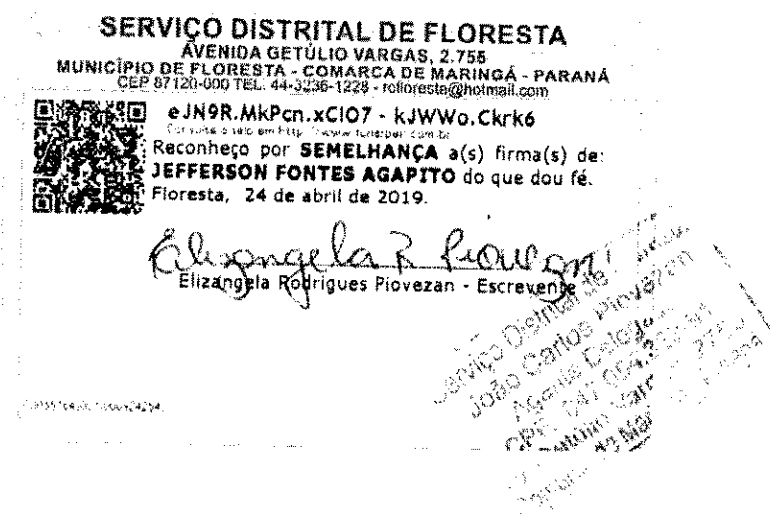 SERVIÇO DISTRITAL DE FLORESTA
AVENIDA GETÚLIO VARGAS, 2.755
MUNICÍPIO DE FLORESTA - COMARCA DE MARINGÁ - PARANÁ
CEP 87120-000 TEL. 44-3236-1228 - rcfloresta@hotmail.com
eJN9R.MkPcn.xClO7 - kJWWo.Ckrk6
Consulte o selo em http://www.funarpen.com.br
Reconheço por SEMELHANÇA a(s) firma(s) de:
JEFFERSON FONTES AGAPITO do que dou fé.
Floresta, 24 de abril de 2019.
Elizangela R Piovezan
Elizangela Rodrigues Piovezan - Escrevente
Serviço Distrital de
João Carlos Piovezan
Agente Delega
CPF: 047